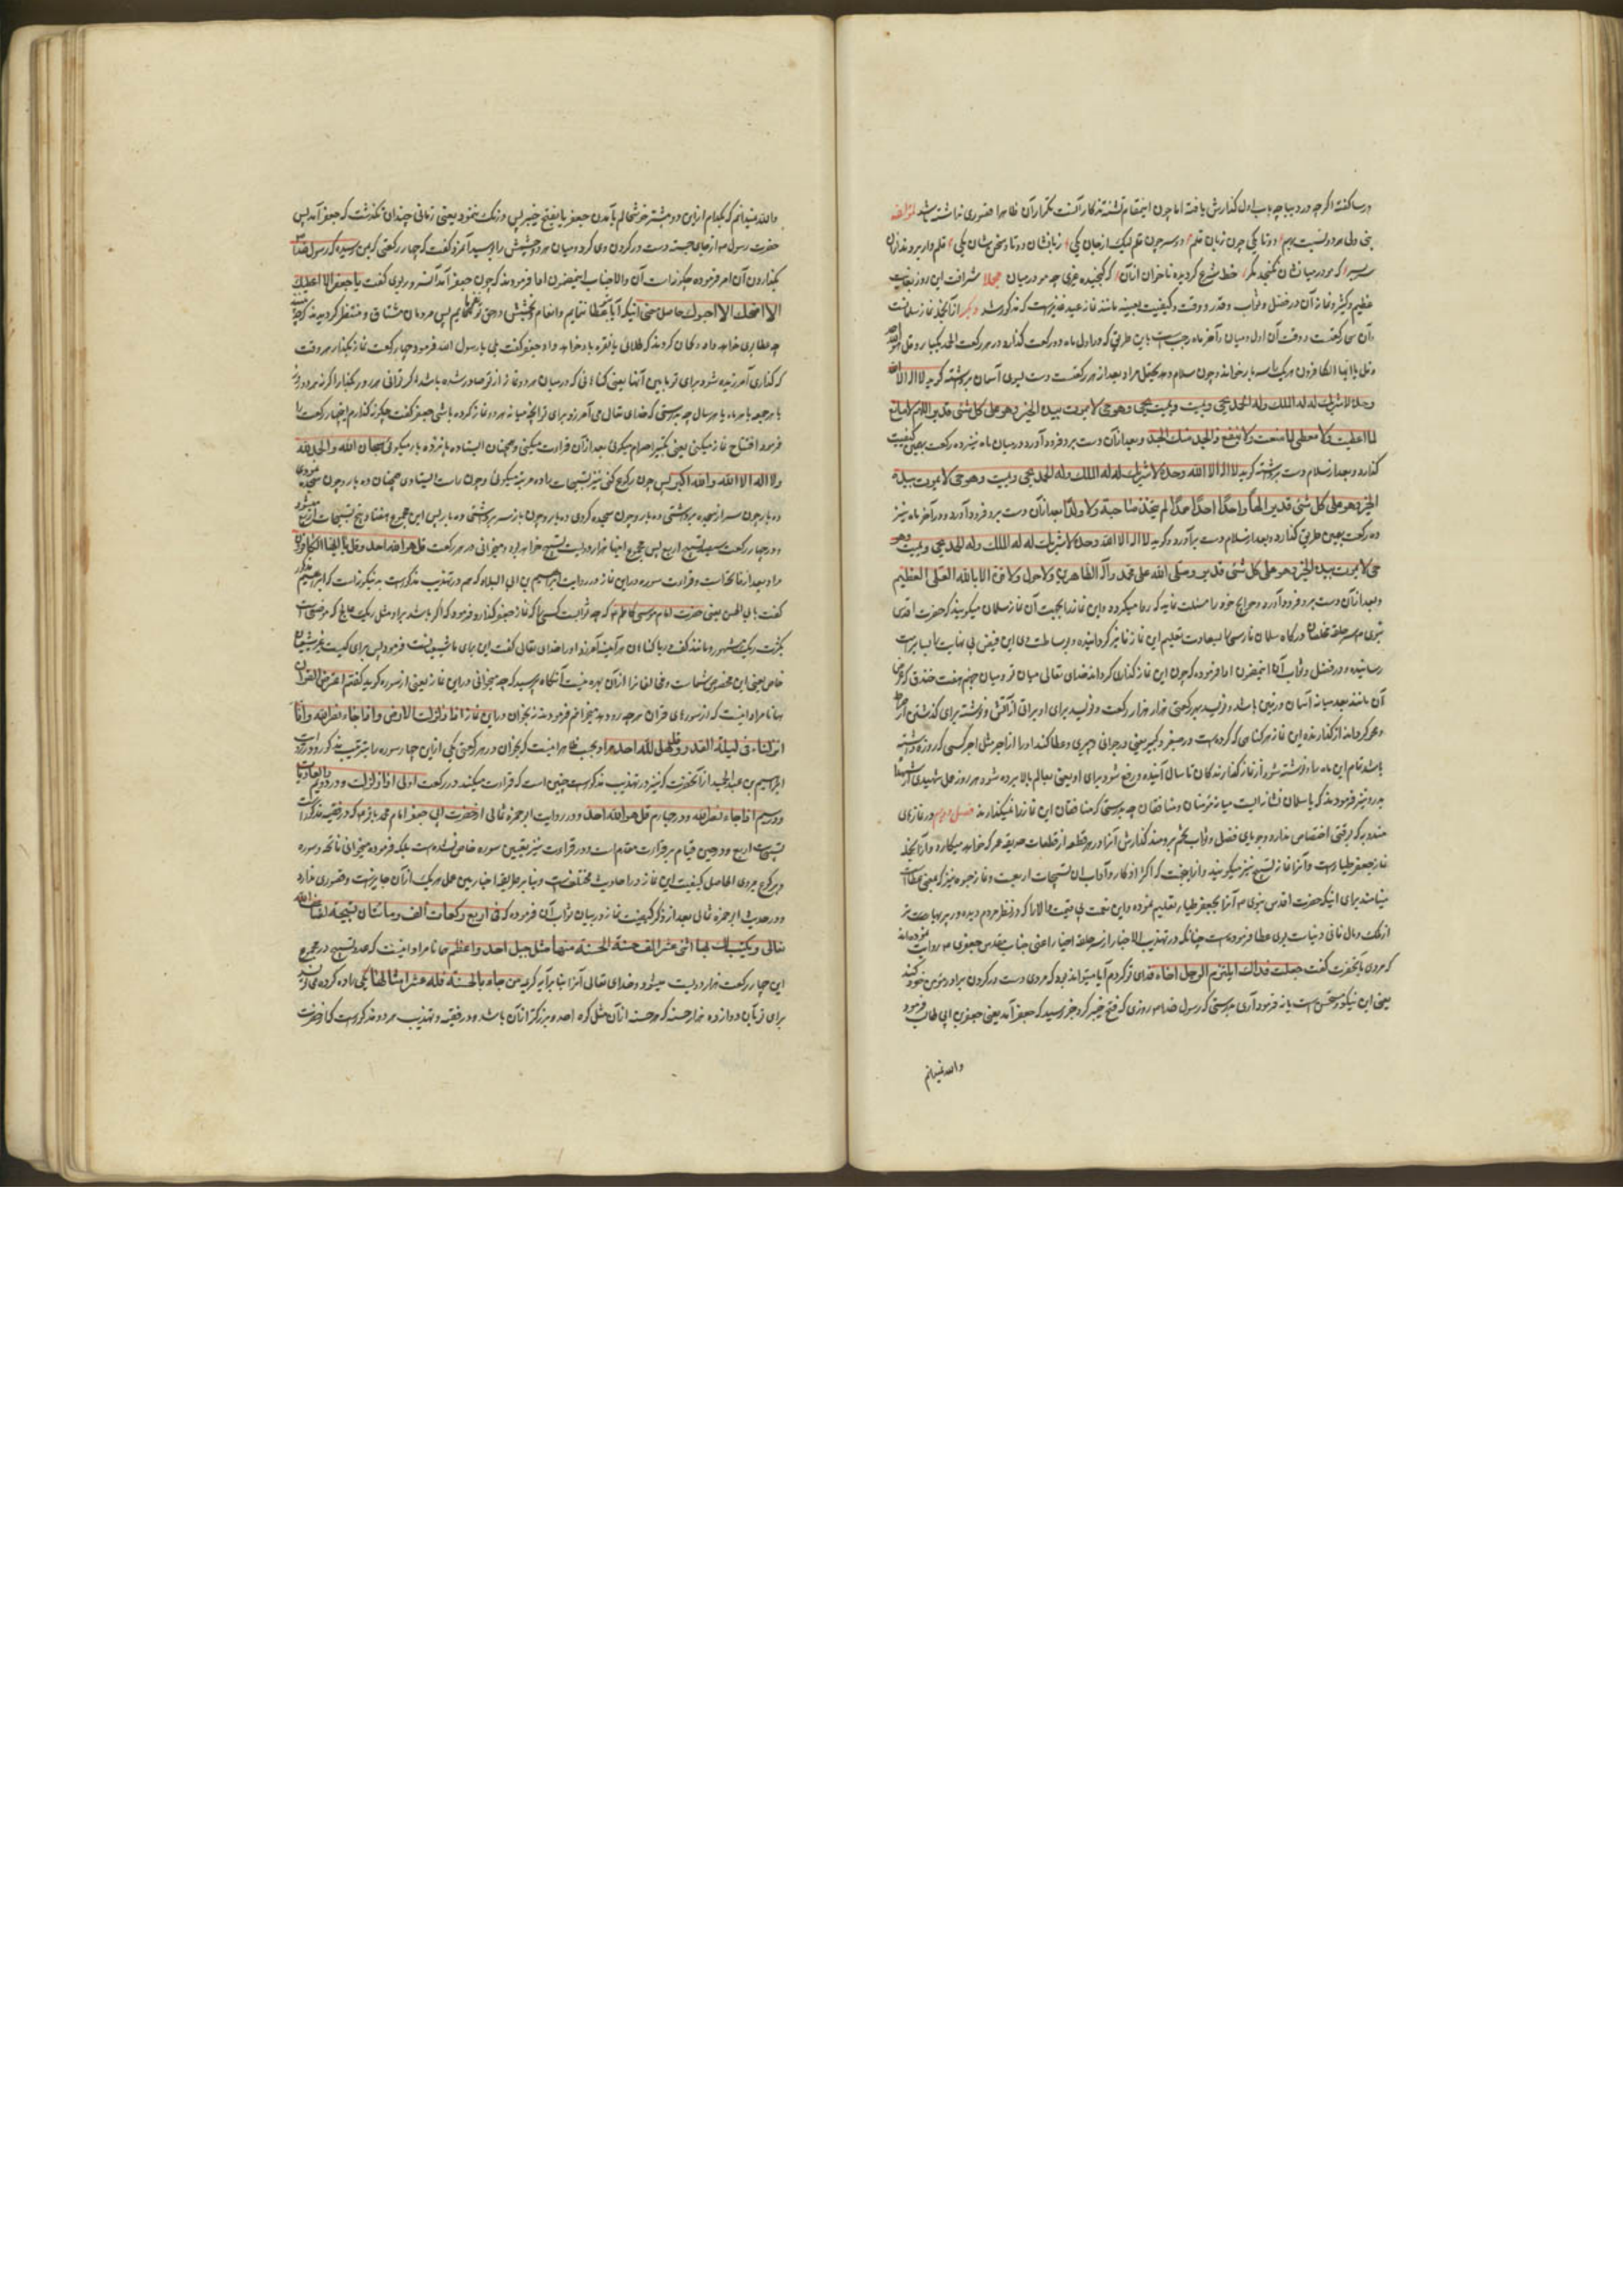 درسا گفته اگرچه در دیباچه باب اول گذارش یافته اما چون اینمقام تشنه تذکار آنست تکرار آن ظاهرا قصوری نداشته باشد لمؤلفه
نبی ولی هر دو نسبت بهم دوتا یکی چون زبان قلم دو سر چون قلم لیک از جان یکی زبانشان دوتا و سخن شان یکی قلم وار بردند از آن
که مو در میانشان نگنجد مگر خط شرع گردیده تا خوان از آن که گنجیده غیری چه مو در میان مجملا شرافت این روز بغایت
عظیم و کثیر و نماز آن در فضل و ثواب و قدر و وقت و کیفیت بعینه مانند نماز عید غدیرست که مذکور شد دیگر از آنجمله نماز سلمانست
وآن سی رکعتست و وقت آن اول و میان و آخر ماه رجب ست باین طریق که در اول ماه ده رکعت گذارد در هر رکعت الحمد یکبار و قل هو الله
وقل یا ایها الکافرون هریک سه بار خواند و چون سلام دهد بعد از هر رکعت دست بسوی آسمان برداشته گوید لا اله الا الله
وحده لا شریک له له الملک وله الحمد یحیی ویمیت ویمیت ویحیی وهو حی لا یموت بیده الخیر وهو علی کل شئ قدیر اللهم لا مانع
لما اعطیت ولا معطی لما منعت ولا ینفع ذا الجد منک الجد و بعد از آن دست برو فرود آورد و در میان ماه نیز ده رکعت بهمین کیفیت
گذارد و بعد از سلام دست برداشته گوید لا اله الا الله وحده لا شریک له له الملک وله الحمد یحیی ویمیت وهو حی لا یموت بیده
الخیر وهو علی کل شئ قدیر الها واحدا احدا صمدا لم یتخذ صاحبة ولا ولدا بعد از آن دست برو فرود آورد و در آخر ماه نیز
ده رکعت بهمین طریق گذارد و بعد از سلام دست برآورد و گوید لا اله الا الله وحده لا شریک له له الملک وله الحمد یحیی ویمیت وهو
حی لا یموت بیده الخیر وهو علی کل شئ قدیر وصلی الله علی محمد وآله الطاهرین ولا حول ولا قوة الا بالله العلی العظیم
وبعد از آن دست برو فرود آورد و حوایج خود را مسئلت نماید که روا میگردد و این نماز را بجهت آن نماز سلمان میگویند که حضرت اقدس
نبوی ص سر حلقه مخلصان درگاه سلمان فارسی را بسعادت تعلیم این نماز فایز گردانیده و بوساطت وی این فیض بی نهایت
رسانیده و در فضل و ثواب آن آنحضرت ادا فرموده که چون این نماز گذاری گرداند خدای تعالی میان تو و میان جهنم هفت خندق که عرض
آن مانند بعد میانه آسمان و زمین باشد و نویسد بهر رکعتی هزار هزار رکعت و نویسد برای او براتی از آتش و نوشته برای گذشتن از صراط
و محو گرداند از گذارنده این نماز هر گناهی که کرده است در صغیر و کبیر یعنی در جوانی و پیری و عطا کند او را از اجر مثل اجر کسی که روزه داشته
باشد تمام این ماه را و نوشته شود از نماز گذارندگان تا سال آینده و رفع شود برای او یعنی بعالم بالا برده شود هر روز عمل شهیدی از شهدا
بدر و نیز فرمودند که یا سلمان نشانه ایست میانه مؤمنان و منافقان چه بدرستی که منافقان این نماز را نمیگذارند فصل دوم در نمازهای
مندوبه که بوقتی اختصاص ندارد و جویای فضل و ثواب گذارش آنرا در هر قطعه از قطعات حدیقه عمر که خواهد میکارد و از آنجمله
نماز جعفر طیارست و آنرا نماز تسبیح نیز میگویند و از انجهت که اکثر اذکار و آداب آن تسبیحات اربعست و نماز حبوه نیز که بمعنی عطاست
مینامند برای اینکه حضرت اقدس نبوی ص آنرا بجعفر طیار تعلیم نموده و این نعمت بی قیمت والا را که در نظر مردم دیده ور پربها تر
از ملک و مال فانی دنیاست بوی عطا فرموده است چنانکه در تهذیب الاخبار از سر حلقه اخیار اعنی جناب مقدس جعفری ص روایت نموده اند
که مردی بآنحضرت گفت جعلت فداک ایلتزم الرجل اخاه فدای تو گردم آیا میتواند بود که مردی دست در گردن برادر مؤمن خود کند
یعنی این نیکو و مستحسن است یا نه فرمود آری بدرستی که رسول خدا ص روزی که فتح خیبر کرد خبر رسید که جعفر آمد یعنی جعفر بن ابی طالب فرمود
والله نمیدانم
والله نمیدانم که بکدام ازین دو بیشتر خوشحالم بآمدن جعفر یا بفتح خیبر پس درنگ ننمود یعنی زمانی چندان نگذشت که جعفر آمد پس
حضرت رسول ص از جای جسته دست در گردن وی کرد و میان هر دو چشمش را بوسید آنمرد گفت که چهار رکعتی که بمن رسیده که رسول خدا ص
بگذاردن آن امر فرموده چگونه است آن والاجناب اینمضمون ادا فرمودند که چون جعفر آمد آن سرور بوی گفت یا جعفر الا اعطیک
الا امنحک الا احبوک حاصل معنی اینکه آیا بتو عطا ننمایم و انعام و بخشش در حق تو بجا نیاورم پس مردمان مشتاق و منتظر گردیدند که
چه عطا بوی خواهد داد و گمان کردند که طلائی یا نقره باو خواهد داد جعفر گفت بلی یا رسول الله فرمود چهار رکعت نماز بگذار هر وقت
که گذاری آمرزیده شود برای تو مابین آنها یعنی گناهانی که در میان هر دو نماز از تو صادر شده باشد اگر توانی هر روز بگذار و اگر نه هر دو روز
یا هر جمعه یا هر ماه یا هر سال چه بدرستی که خدای تعالی می آمرزد برای تو آنچه میانه هر دو نماز کرده باشی جعفر گفت چگونه گذارم این چهار رکعت را
فرمود افتتاح نماز میکنی یعنی تکبیر احرام میگوئی بعد از آن قرائت میکنی و همچنان ایستاده پانزده بار میگوئی سبحان الله والحمد لله
ولا اله الا الله والله اکبر پس چون رکوع کنی نیز تسبیحات را ده مرتبه میگوئی و چون راست ایستادی همچنان ده بار و چون سجده نمودی
ده بار چون سر از سجده برداشتی ده بار و چون سجده کردی ده بار و چون باز سر برداشتی ده بار پس این مجموع هفتاد و پنج تسبیحات اربع میشود
و در چهار رکعت سیصد تسبیح اربع پس مجموع اینها هزار و دویست تسبیح خواهد بود و میخوانی در هر رکعت قل هو الله احد و قل یا ایها الکافرون
مراد بعد از فاتحه است و قرائت سوره در این نماز در روایت ابراهیم بن ابی البلاد که هم در تهذیب مذکورست بدینگونه است که ابراهیم مذکور
گفت بابی الحسن یعنی حضرت امام موسی کاظم ع که چه ثوابست کسی را که نماز جعفر گذارد فرمود که اگر باشد برو مثل ریگ عالج که موضعی است
بکثرت ریگ مشهور و مانند کف دریا گناهان هر آینه آمرزد او را خدای تعالی گفت این برای ما شیعیانست فرمود پس برای کیست غیر شیعیان
خاص یعنی این مخصوص شماست و مخالفانرا از آن بهره نیست آنگاه پرسید که چه میخوانی در این نماز یعنی از سوره گوید گفتم اعترض القرآن
همانا مراد اینست که از سورهای قرآن هر چه رو دهد میخوانم فرمودند نه بخوان در این نماز اذا زلزلت الارض و اذا جاء نصر الله و انا
انزلناه فی لیلة القدر و قل هو الله احد مراد بحسب ظاهر اینست که بخوان در هر رکعتی یکی ازین چهار سوره را بترتیب مذکور و در روایت
ابراهیم بن عبد الحمید از آنحضرت که نیز در تهذیب مذکورست چنین است که قرائت میکند در رکعت اولی اذا زلزلت و در دویم والعادیات
و در سیم اذا جاء نصر الله و در چهارم قل هو الله احد و در روایت ابو حمزه ثمالی از حضرت ابی جعفر امام محمد باقر ع که در فقیه مذکورست
تسبیحات اربع در حین قیام بر قرائت مقدم است و در قرائت نیز تعیین سوره خاص نشده است بلکه فرموده میخوانی فاتحه و سوره
و برکوع میروی الحاصل کیفیت این نماز در احادیث مختلفست و بنا بر طریقه اخباریین عمل بهر یک از آن جایزست و قصوری ندارد
و در حدیث ابو حمزه ثمالی بعد از ذکر کیفیت نماز در بیان ثواب آن فرموده که فی اربع رکعات الف ومائتان تسبیحة یضاعفها الله
تعالی ویکتب لک بها اثنی عشر الف حسنة الحسنة منها مثل جبل احد واعظم همانا مراد اینست که عدد تسبیح در مجموع
این چهار رکعت هزار و دویست میشود و خدای تعالی آنرا بنا بر آیه کریمه من جاء بالحسنة فله عشر امثالها یکی را ده کرده می نویسد
برای تو بآن دوازده هزار حسنه که هر حسنه از آن مثل کوه احد و بزرگتر از آن باشد و در فقیه و تهذیب هر دو مذکورست که از حضرت